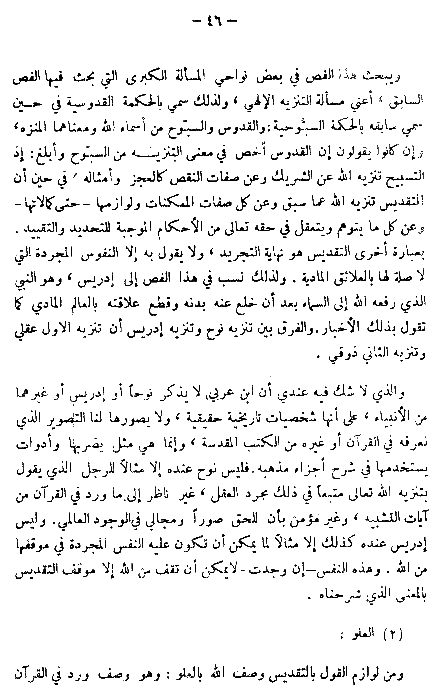 — ٤٦ —
ويبحث هذا الفص في بعض نواحي المسألة الكبرى التي بحث فيها الفص
السابق ، أعني مسألة التنزيه الإلهي ، ولذلك سمي بالحكمة القدوسية في حين
سمي سابقه بالحكمة السبّوحية : والقدوس والسبّوح من أسماء الله ومعناهما المنزه ،
وإن كانوا يقولون إن القدوس أخص في معنى التنزيه من السبّوح وأبلغ : إذ
التسبيح تنزيه الله عن الشريك وعن صفات النقص كالعجز وأمثاله ، في حين أن
التقديس تنزيه الله عما سبق وعن كل صفات الممكنات ولوازمها – حتى كمالاتها –
وعن كل ما يتوهم ويتعقل في حقه تعالى من الأحكام الموجبة للتحديد والتقييد .
بعبارة أخرى التقديس هو نهاية التجريد ، ولا يقول به إلا النفوس المجردة التي
لا صلة لها بالعلائق المادية . ولذلك نسب في هذا الفص إلى إدريس ، وهو النبي
الذي رفعه الله إلى السماء بعد أن خلع عنه بدنه وقطع علاقته بالعالم المادي كما
تقول بذلك الأخبار . والفرق بين تنزيه نوح وتنزيه إدريس أن تنزيه الاول عقلي
وتنزيه الثاني ذوقي .
والذي لا شك فيه عندي أن ابن عربي لا يذكر نوحاً أو إدريس أو غيرهما
من الأنبياء ، على أنها شخصيات تاريخية حقيقية ، ولا يصورها لنا التصوير الذي
نعرفه في القرآن أو غيره من الكتب المقدسة ، وإنما هي مثل يضربها وأدوات
يستخدمها في شرح أجزاء مذهبه . فليس نوح عنده إلا مثالاً للرجل الذي يقول
بتنزيه الله تعالى متبعاً في ذلك مجرد العقل ، غير ناظر إلى ما ورد في القرآن من
آيات التشبيه ، وغير مؤمن بأن للحق صوراً ومجالي في الوجود العالمي . وليس
إدريس عنده كذلك إلا مثالاً لما يمكن أن تكون عليه النفس المجردة في موقفها
من الله . وهذه النفس – إن وجدت – لا يمكن أن تقف من الله إلا موقف التقديس
بالمعنى الذي شرحناه .
(٢) العلو :
ومن لوازم القول بالتقديس وصف الله بالعلو : وهو وصف ورد في القرآن